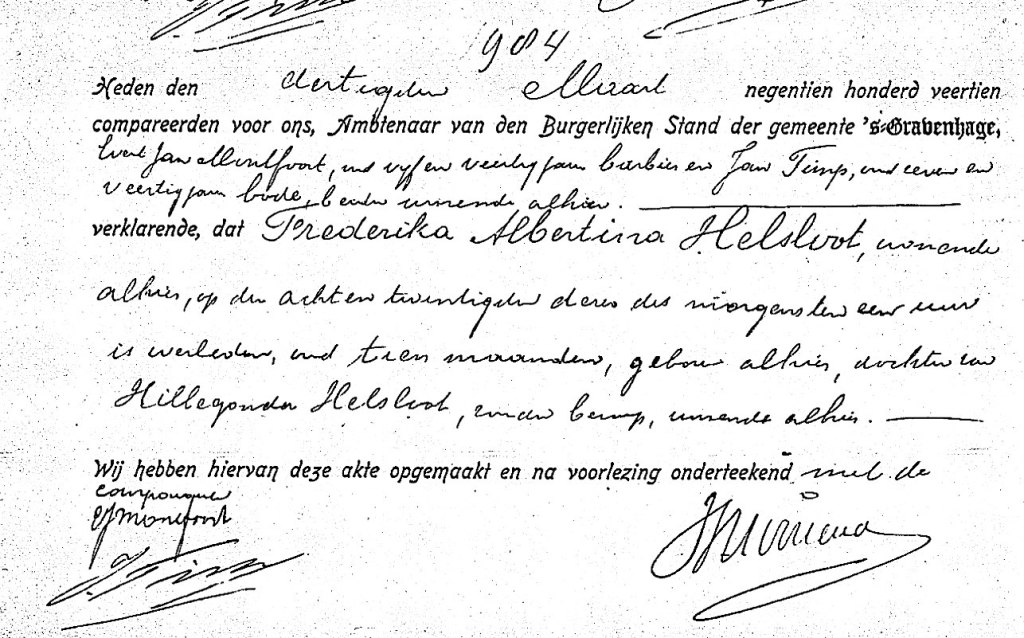 984
Heden den dertigsten Maart negentien honderd veertien
compareerden voor ons, Ambtenaar van den Burgerlijken Stand der gemeente 's-Gravenhage,
Evert Jan Montfoort, oud vijf en veertig jaar barbier en Jan Timp, oud zeven en
veertig jaar bode, beiden wonende alhier.
verklarende, dat Frederika Albertina Helsloot, wonende
alhier, op den acht en twintigsten dezer des morgens ten een ure
is overleden, oud tien maanden, geboren alhier, dochter van
Hillegonda Helsloot, zonder beroep, wonende alhier.
Wij hebben hiervan deze akte opgemaakt en na voorlezing onderteekend met de
comparanten
EJMontfoort
JTimp